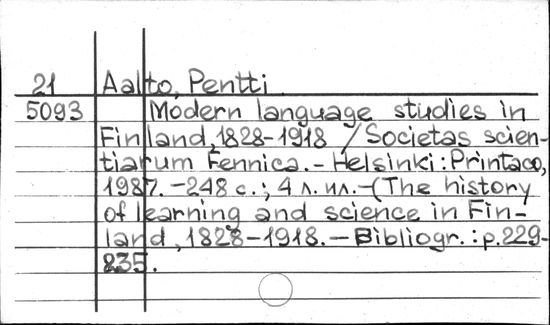 21 Aalto, Pentti
5093 Modern language studies in
Finland, 1828-1918 / Societas scien-
tiarum Fennica. - Helsinki: Printaco,
1987. - 248 с.; 4 л. ил. - (The history
of learning and science in Fin-
land, 1828-1918. - Bibliogr.: p. 229-
235.